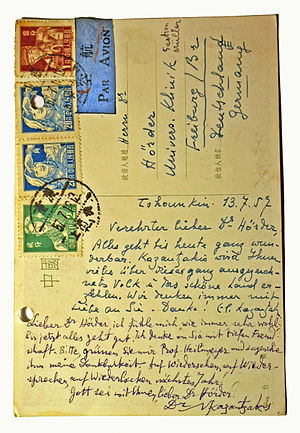 航空
PAR AVION
Herrn Dr
Hörder
Univers. Klinik Section
Müller
Freiburg/Br
Deutschland
Germany
中國
Tshounkin. 13.7.57
Verehrter lieber Dr Hörder,
Alles geht bis heute ganz wun-
derbar. Kazantzakis wird Ihnen
vieles über dieses ganz ausgezeich-
nete Volk u das schöne Land er-
zählen. Wir denken immer mit
Liebe an Sie. Danke!
Lieber Dr Hörder, ich fühle mich wie immer sehr wohl
bis jetzt alles geht gut. Ich denke an Sie mit tiefer Freund-
schaft. Bitte, grüssen Sie mir Prof. Heilmeyer
ihm meine Dankbarkeit. Auf Wiedersehen, auf Wieder-
sprechen, auf Wiederlachen nächstes Jahr,
Gott sei mit Ihnen, lieber Dr Hörder.
Dr Kazantzakis